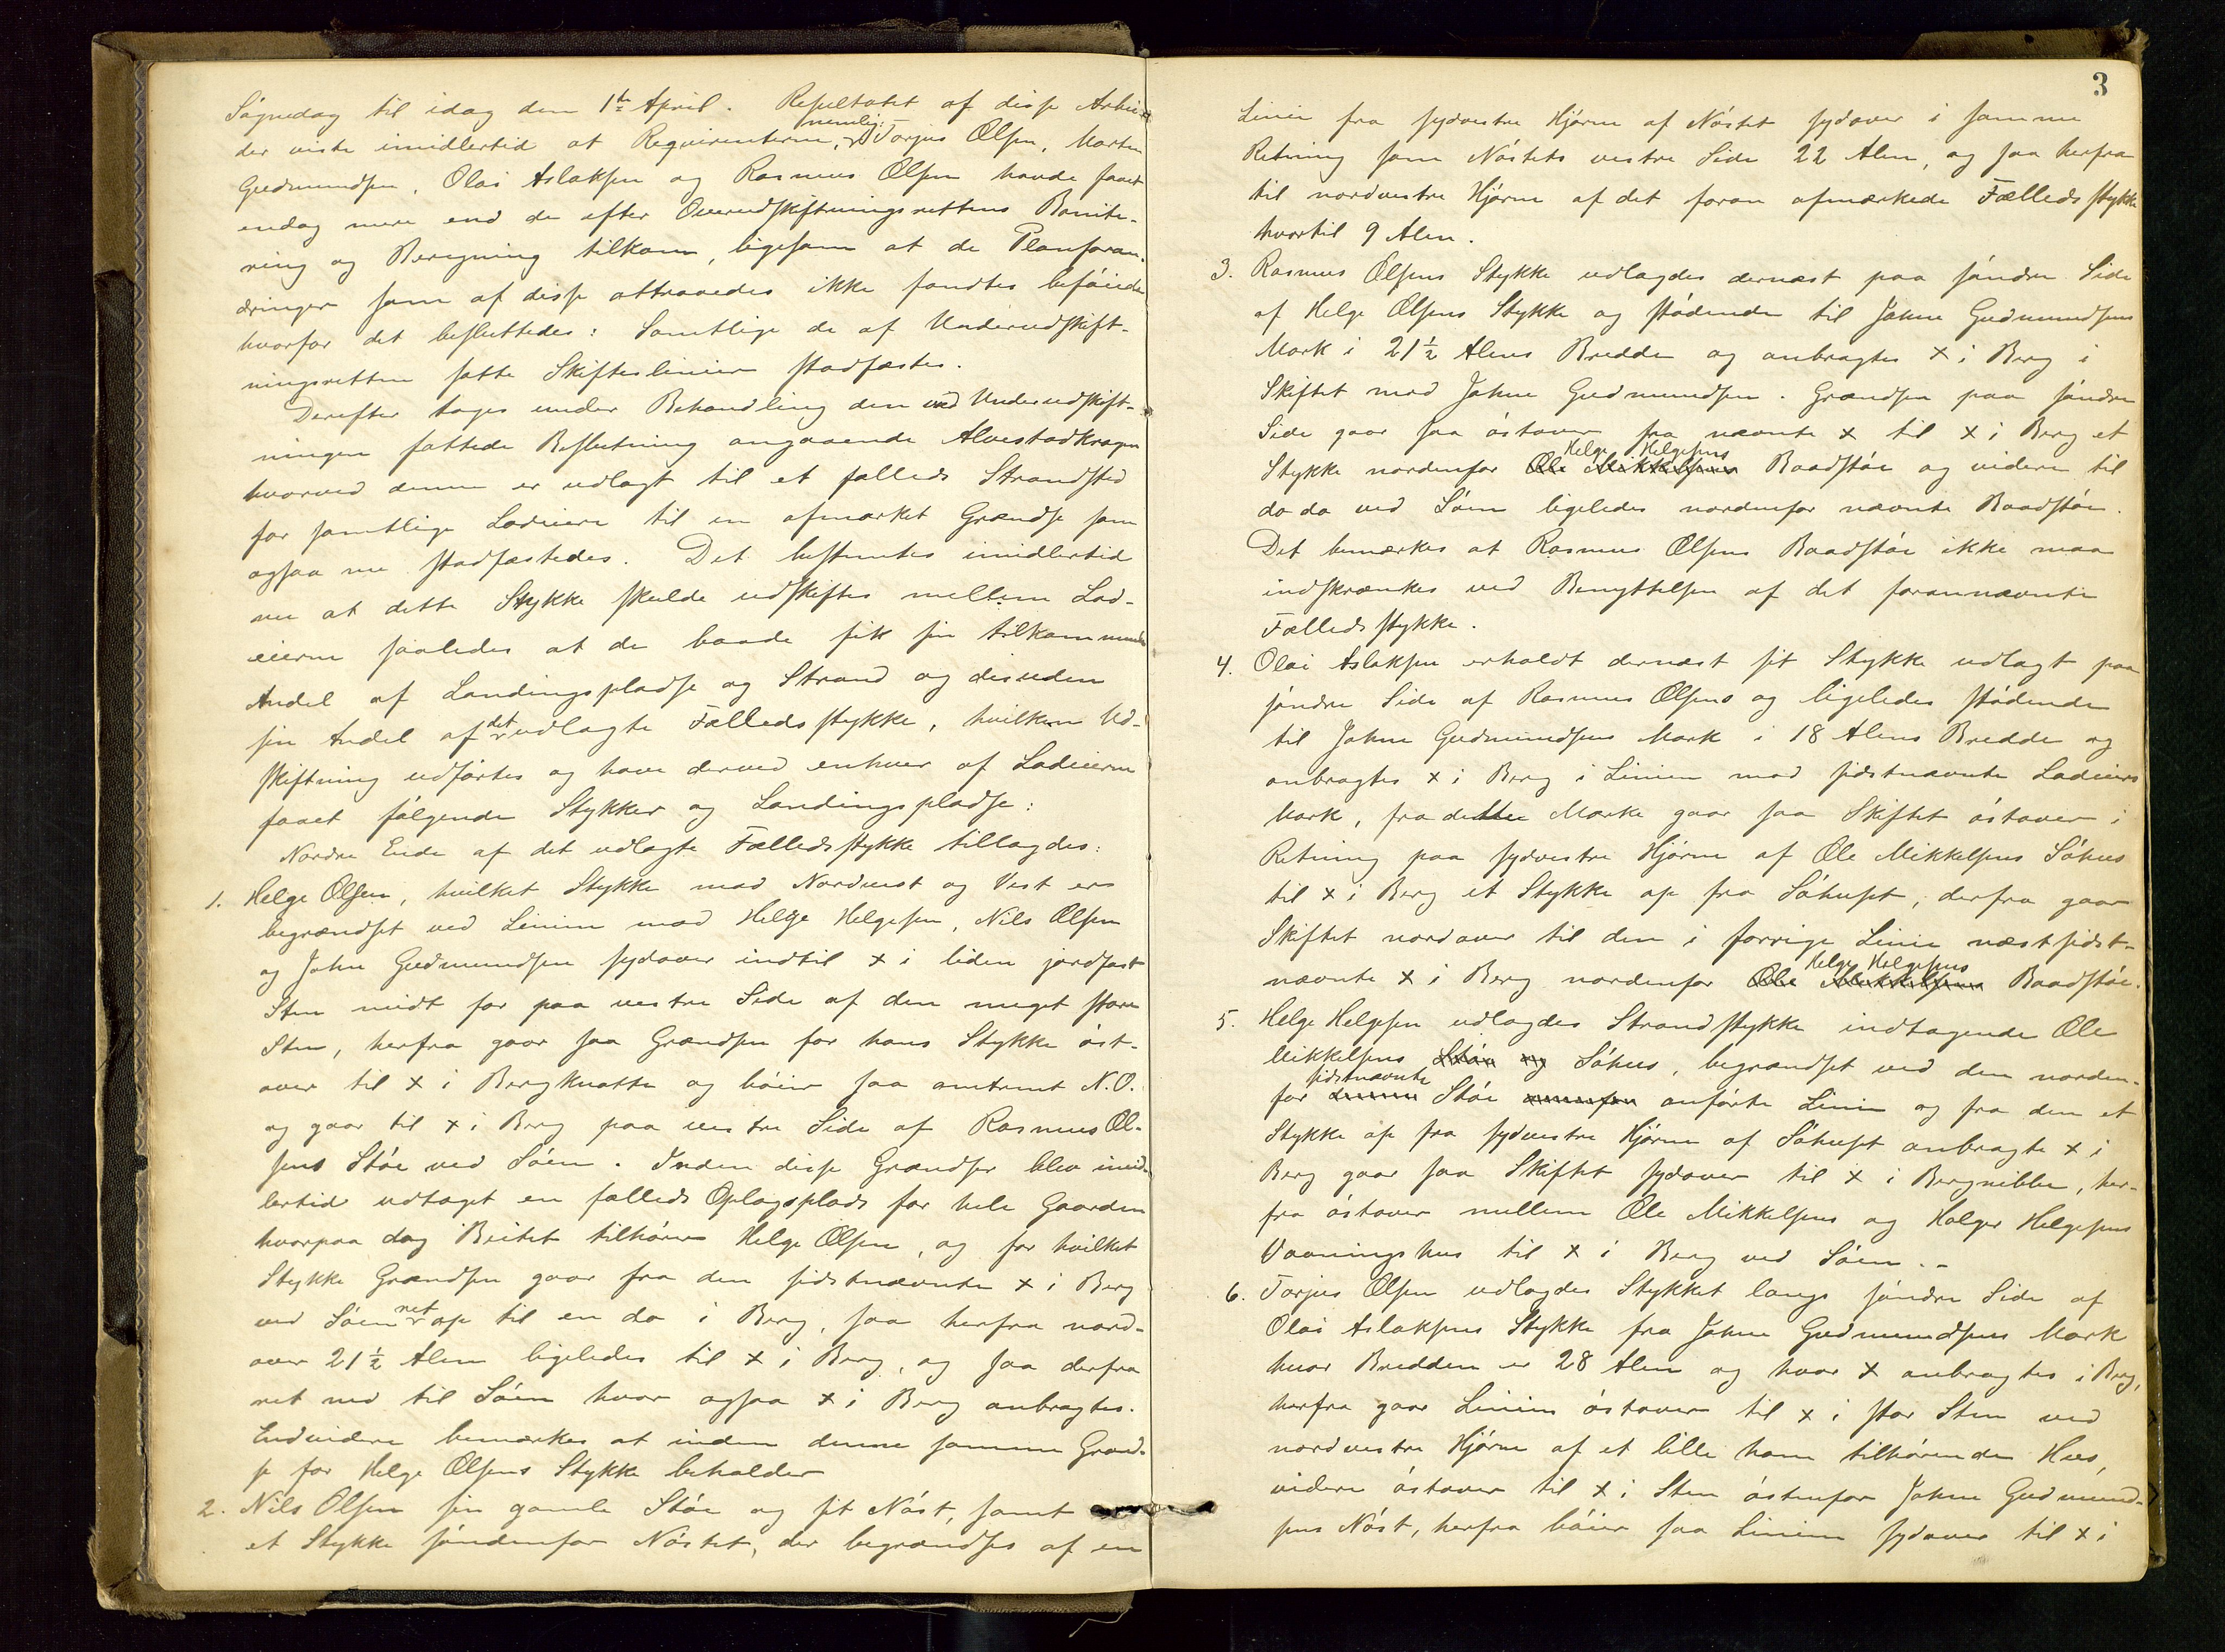 Søgnedag til idag den 1te April. Resultatet af disse Arbei-
der viste imidlertid at Reqvirenterne, nemlig: Torjus Olsen, Marten
Gudmundsen, Olai Aslaksen og Rasmus Olsen havde faaet
endog mere end de efter Overudskiftningsrettens Bonite-
ring og Beregning tilkom, ligesom at de Planforan-
dringer som af disse attraaedes ikke fandtes beføiede
hvorfor det besluttedes: Samtlige de af Underudskift-
ningsretten satte Skifteslinier stadfæstes.
Derefter toges under Behandling den ved Underudskift-
ningen fattede Beslutning angaaende Alvestadkragen
hvorved denne er udlagt til et fælleds Strandsted
for samtlige Lodeiere til en afmærket Grændse som
ogsaa nu stadfæstedes. Det bestemtes imidlertid
nu at dette Stykke skulde udskiftes mellem Lod-
eierne saaledes at de baade fik sin tilkommende
Andel af Landingspladse og Strand og desuden
sin Andel af det udlagte Fælledsstykke, hvilken Ud-
skiftning udførtes og have derved enhver af Lodeierne
faaet følgende Stykker og Landingspladse:
Nordre Ende af det udlagte Fælledsstykke tillagdes:
1. Helge Olsen, hvilket Stykke mod Nordvest og Vest er
begrændset ved Linien mod Helge Helgesen, Nils Olsen
og John Gudmundsen sydover indtil x i liden jordfast
Sten midt for paa vestre Side af den meget store
Sten, herfra gaar saa Grændsen for hans Stykke øst-
over til x i Bergknatte og bøier saa omtrent N.O.
og gaar til x i Berg paa vestre Side af Rasmus Ol-
sens Støe ved Søen. Inden disse Grændser blev imid-
lertid udtaget en fælleds Oplagsplads for hele Gaarden
hvorpaa dog Beitet tilhører Helge Olsen, og for hvilket
Stykke Grændsen gaar fra den sidstnævnte x i Berg
ved Søen ret op til en do i Berg, saa herfra nord-
over 21 1/2 Alen ligeledes til x i Berg, og saa derfra
ret ned til Søen hvor ogsaa x i Berg anbragtes.
Endvidere bemærkes at inden denne samme Grænd-
se for Helge Olsens Stykke beholder
2. Nils Olsen sin gamle Støe og sit Nøst, samt
et Stykke søndenfor Nøstet, der begrændses af en
3
Linie fra sydvestre Hjørne af Nøstet sydover i samme
Retning som Nøstets vestre Side 22 Alen, og saa herfra
til nordvestre Hjørne af det foran afmærkede Fælledsstykke
hvortil 9 Alen.
3. Rasmus Olsens Stykke udlagdes dernæst paa søndre Side
af Helge Olsens Stykke og stødende til Johne Gudmundsens
Mark i 21 1/2 Alens Bredde og anbragtes x i Berg i
Skiftet mod Johne Gudmundsen. Grændsen paa søndre
Side gaar saa østover fra nævnte x til x i Berg et
Stykke nordenfor Ole Mikkelsens Helge Helgesens Baadstøe og videre til
do do ved Søen ligeledes nordenfor nævnte Baadstøe.
Det bemærkes at Rasmus Olsens Baadstøe ikke maa
indskrænkes ved Benyttelsen af det forannævnte
Fælledsstykke.
4. Olai Aslaksen erholdt dernæst sit Stykke udlagt paa
søndre Side af Rasmus Olsens og ligeledes stødende
til Johne Gudmundsens Mark i 18 Alens Bredde og
anbragtes x i Berg i Linien mod sidstnævnte Lodeiers
Mark, fra dette Mærke gaar saa Skiftet østover i
Retning paa sydvestre Hjørne af Ole Mikkelsens Søhus
til x i Berg et Stykke op fra Søhuset, derfra gaar
Skiftet nordover til den i forrige Linie næstsidst-
nævnte x i Berg nordenfor Ole Mikkelsens Helge Helgesens Baadstøe.
5. Helge Helgesen udlagdes Strandstykke indtagende Ole
Mikkelsens Støe og Søhus, begrændset ved den norden-
for denne sidstnævnte Støe anførte Linie og fra den et
Stykke op fra sydvestre Hjørne af Søhuset anbragte x i
Berg gaar saa Skiftet sydover til x i Bergnibbe, her-
fra østover mellem Ole Mikkelsens og Holger Helgesens
Vaaningshus til x i Berg ved Søen.-
6. Torjus Olsen udlagdes Stykket langs søndre Side af
Olai Aslaksens Stykke fra Johne Gudmundsens Mark
hvor Bredden er 28 Alen og hvor x anbragtes i Berg,
herfra gaar Linien østover til x i stor Sten ved
nordvestre Hjørne af et lille ham tilhørende Hus,
videre østover til x i Sten østenfor Johne Gudmund-
sens Nøst, herfra bøier saa Linien sydover til x i